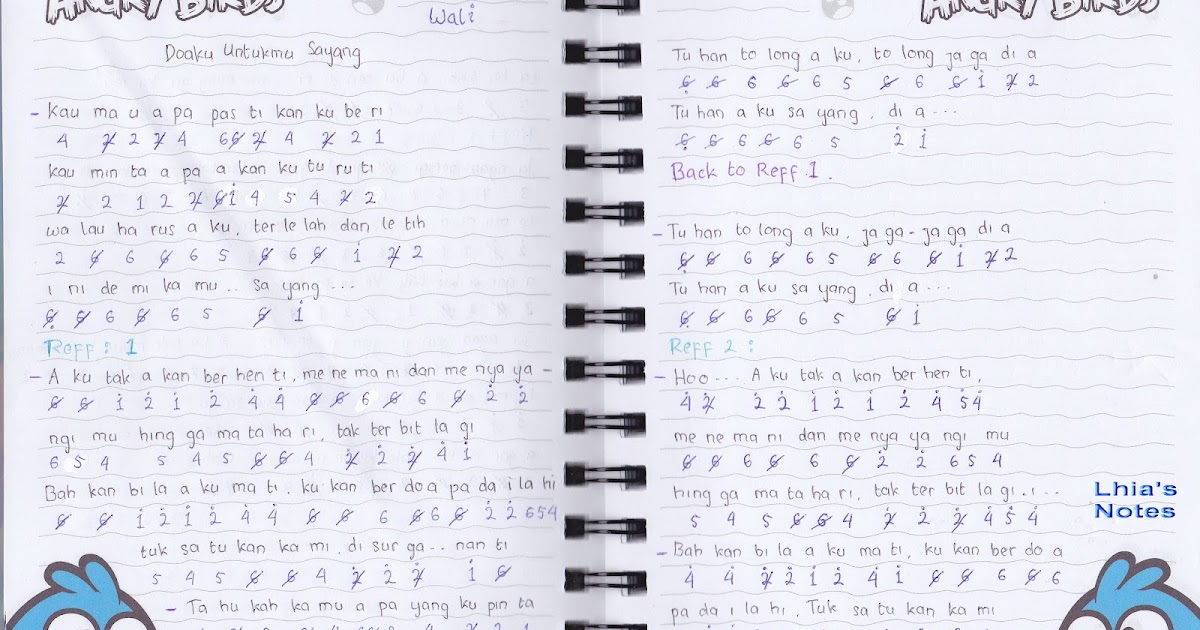 ANGRY BIRDS
Wali
Doaku Untukmu Sayang
- Kau ma u a pa pas ti kan ku be ri
4 2 2 2 4 6 6 2 4 2 2 1
kau min ta a pa a kan ku tu ru ti
2 2 1 2 2 6 i 4 5 4 2 2
wa lau ha rus a ku, ter le lah dan le tih
2 6 6 6 6 5 6 6 6 1 2 2
i ni de mi ka mu .. sa yang ...
6 6 6 6 6 5 6 i
Reff : 1
- A ku tak a kan ber hen ti, me ne ma ni dan me nya ya -
6 6 i 2 i 2 4 4 6 6 6 6 6 6 2 2
ngi mu hing ga ma ta ha ri, tak ter bit la gi
6 5 4 5 4 5 6 6 4 2 2 2 4 i
Bah kan bi la a ku ma ti. ku kan ber do a pa da i la hi
6 6 i 2 i 2 4 4 6 6 6 6 6 6 2 2 6 5 4
tuk sa tu kan ka mi, di sur ga .. nan ti
5 4 5 6 6 4 2 2 2 i 6
- Ta hu kah ka mu a pa yang ku pin ta
ANGRY BIRDS
Tu han to long a ku, to long ja ga di a
6 6 6 6 6 5 6 6 6 i 2 2
Tu han a ku sa yang, di a ...
6 6 6 6 6 5 2 i
Back to Reff 1.
- Tu han to long a ku, ja ga - ja ga di a
6 6 6 6 6 5 6 6 6 1 2 2
Tu han a ku sa yang, di a ...
6 6 6 6 6 5 6 i
Reff 2 :
- Hoo ... A ku tak a kan ber hen ti,
4 2 2 2 1 2 1 2 4 5 4
me ne ma ni dan me nya ya ngi mu
6 6 6 6 6 6 2 2 6 5 4
hing ga ma ta ha ri, tak ter bit la gi .i ...
5 4 5 6 6 4 2 2 2 4 5 4
Lhia's
Notes
- Bah kan bi la a ku ma ti, ku kan ber do a
4 4 2 2 1 2 4 1 6 6 6 6 6
pa da i la hi. Tuk sa tu kan ka mi